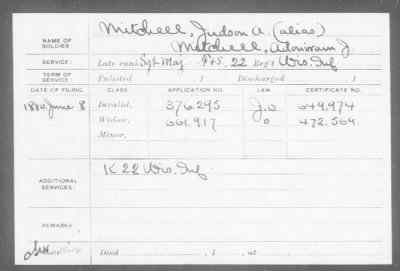 NAME OF SOLDIER: Mitchell, Judson A. (alias)
Mitchell, Adoniram J.
SERVICE: Late rank Sgt Maj F&S, 22 Reg't Wis. Inf
TERM OF SERVICE: Enlisted , 1 Discharged , 1
DATE OF FILING. CLASS. APPLICATION NO. LAW CERTIFICATE NO.
1880, June 8 Invalid, 376.295 649.974
Widow, 661.917 472.569
Minor,
ADDITIONAL SERVICES: K 22 Wis. Inf.
REMARKS:
Died , 1 , at